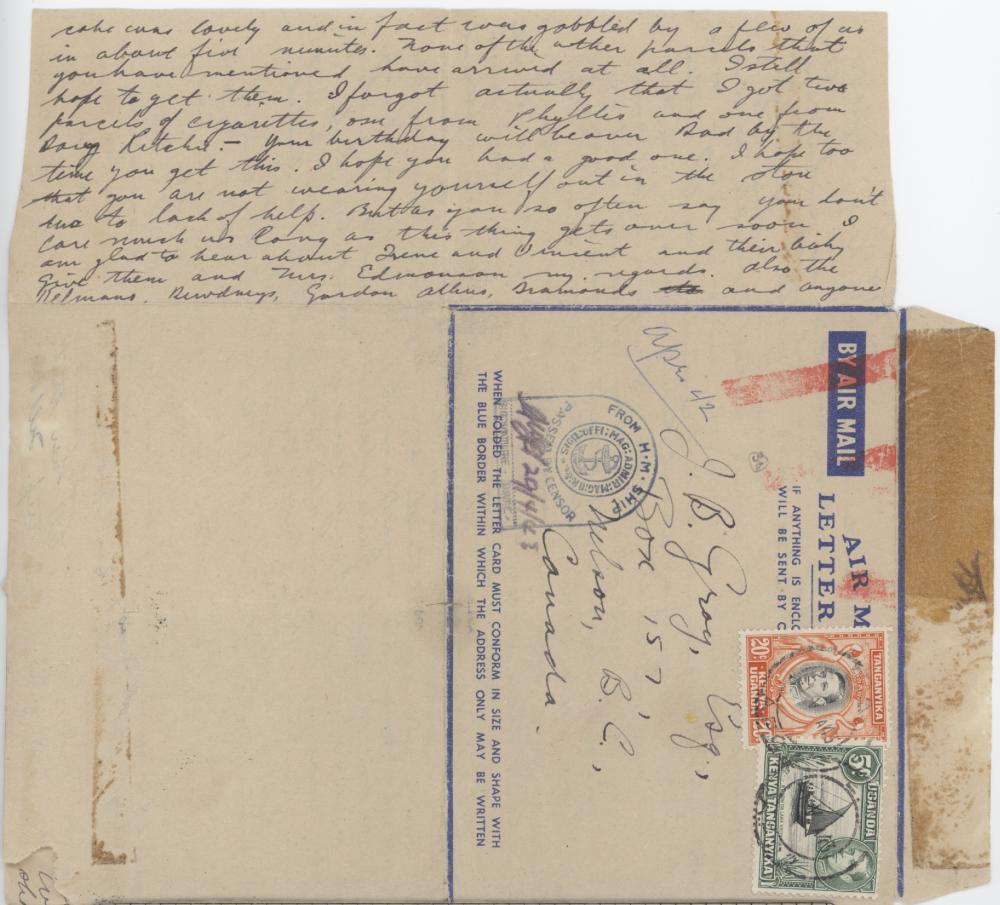 cake was lovely and in fact was gobbled by a few of us
in about five minutes. None of the other parcels that
you have mentioned have arrived at all. I still
hope to get them. I forgot actually that I got two
parcels of cigarettes, one from Phyllis and one from
Ritchie. – Your birthday will be over Dad by the
time you get this. I hope you had a good one. I hope too
that you are not wearing yourself out in the store
due to lack of help. But as you so often say you don't
care much as long as this thing gets over soon. I
am glad to hear about Irene and Vincent and their baby
Give them and Mrs. Edmonson my regards. Also the
Gordon Allens, and anyone
BY AIR MAIL
AIR M
LETTER
IF ANYTHING IS ENCLO
WILL BE SENT BY O
J. B. Gray, Esq.,
Box 157,
Nelson, B.C.,
Canada.
FROM H.M. SHIP
PASSED BY CENSOR
29/4/43
WHEN FOLDED THE LETTER CARD MUST CONFORM IN SIZE AND SHAPE WITH
THE BLUE BORDER WITHIN WHICH THE ADDRESS ONLY MAY BE WRITTEN
TANGANYIKA
KENYA
UGANDA
20c
UGANDA
KENYA TANGANYIKA
5c